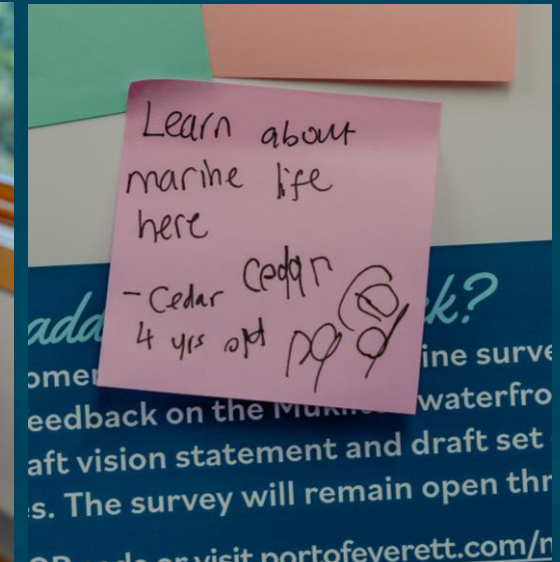 Learn about
marine life
here
- Cedar Cedar
4 yrs old
add k?
omer ine surve
eedback on the Mukilteo waterfro
aft vision statement and draft set
s. The survey will remain open thr
or visit portofeverett.com/m